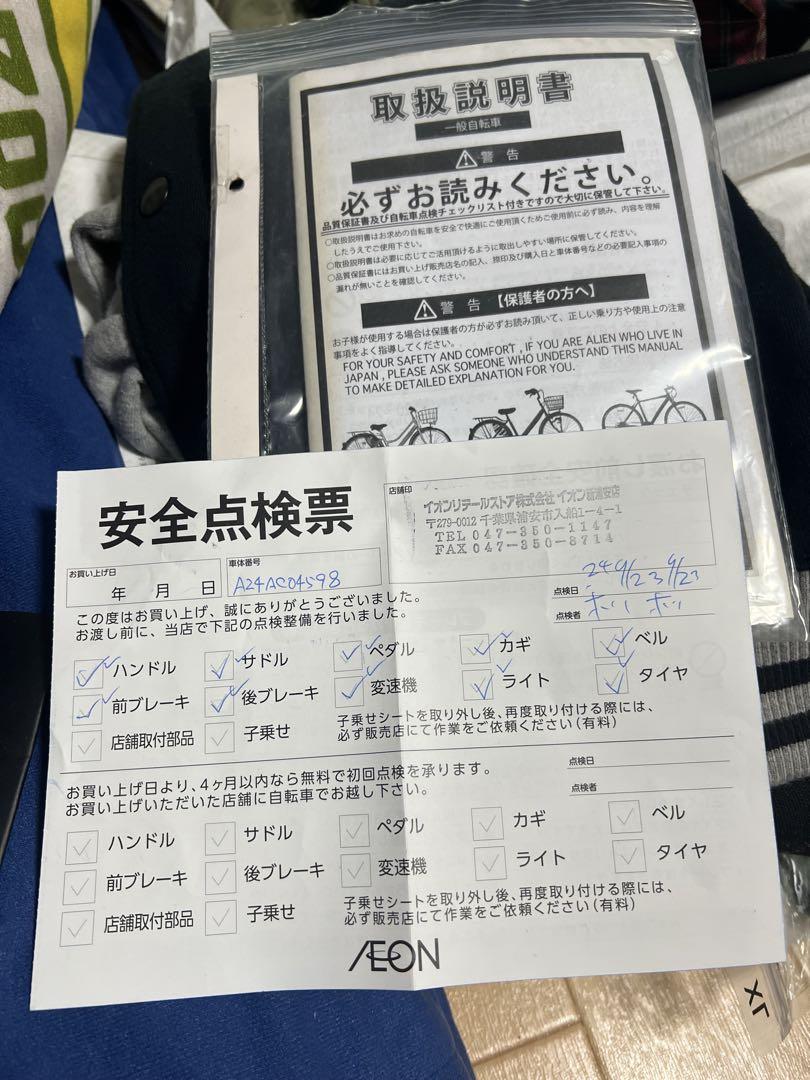 取扱説明書
一般自転車
警告
必ずお読みください。
品質保証書及び自転車点検チェックリスト付きですので大切に保管して下さい。
○取扱説明書はお求めの自転車を安全で快適にご使用頂くためご使用前に必ず読み、内容を理解
したうえでご使用下さい。
○取扱説明書は必要に応じてご活用頂けるように取出しやすい場所に保管してください。
○品質保証書にはお買い上げ販売店名の記入、捺印及び購入日と車体番号などの必要記入事項の
漏れが無いことを確認してください。
警告【保護者の方へ】
お子様が使用する場合は保護者の方が必ずお読み頂いて、正しい乗り方や使用上の注意
事項をよく指導してください。
FOR YOUR SAFETY AND COMFORT , IF YOU ARE ALIEN WHO LIVE IN
JAPAN , PLEASE ASK SOMEONE WHO UNDERSTAND THIS MANUAL
TO MAKE DETAILED EXPLANATION FOR YOU.
安全点検票
店舗印
イオンリテールストア株式会社 イオン新浦安店
〒279-0012 千葉県浦安市入船1-4-1
TEL 047-350-1147
FAX 047-350-8714
お買い上げ日
年 月 日
車体番号
A24AC04598
この度はお買い上げ、誠にありがとうございました。
お渡し前に、当店で下記の点検整備を行いました。
点検日 24 9/23 9/23
点検者
ハンドル サドル ペダル カギ ベル
前ブレーキ 後ブレーキ 変速機 ライト タイヤ
店舗取付部品 子乗せ 子乗せシートを取り外し後、再度取り付ける際には、
必ず販売店にて作業をご依頼ください(有料)
お買い上げ日より、4ヶ月以内なら無料で初回点検を承ります。
お買い上げいただいた店舗に自転車でお越し下さい。
点検日
点検者
ハンドル サドル ペダル カギ ベル
前ブレーキ 後ブレーキ 変速機 ライト タイヤ
店舗取付部品 子乗せ 子乗せシートを取り外し後、再度取り付ける際には、
必ず販売店にて作業をご依頼ください(有料)
ÆON